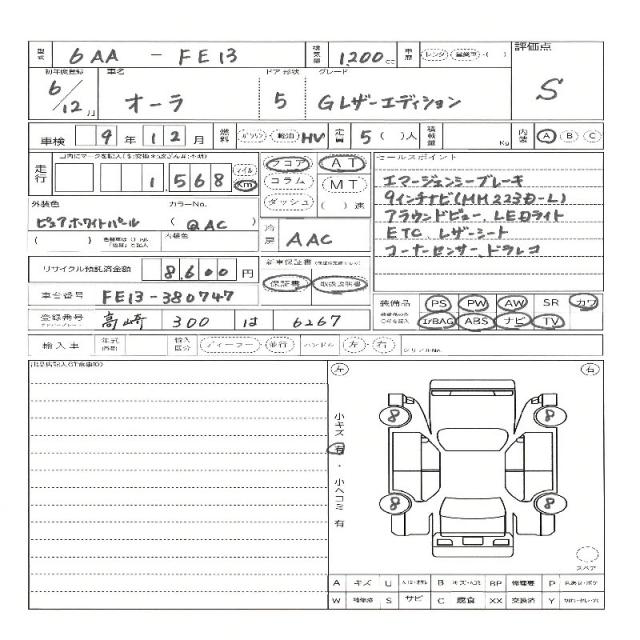 型式 6AA - FE13 排気量 1,200 cc 車歴 レンタ 自家用 ( ) 評価点
初年度登録 車名 ドア 形状 グレード
6/12月 オーラ 5 Gレザーエディション S
車検 9年12月 燃料 ガソリン 軽油 HV 定員 5( )人 積載量 Kg 内装 A B C
走行 1,568 マイル Km フロア AT セールスポイント
コラム MT エマージェンシーブレーキ
ダッシュ ( )速 9インチナビ(MM223D-L)
外装色 カラーNo. アラウンドビュー、LEDライト
ピュアホワイトパール (QAC) 冷房 AAC ETC、レザーシート
( ) 内装色 コーナーセンサー、ドラレコ
リサイクル預託済金額 8,600円 新車保証書
保証書 取扱説明書
車台番号 FE13-380747 装備品 PS PW AW SR カワ
登録番号 高崎 300 は 6267 エアBAG ABS ナビ TV
輸入車 年式 輸入区分 ディーラー・並行 ハンドル 左・右 シリアルNo.
左 右
小キズ 有・小ヘコミ 有
8 8
8 8
スペア
A キズ U B キズ・ヘコミ BP 修理要 P
W 補修済 S サビ C 腐食 XX 交換済 Y